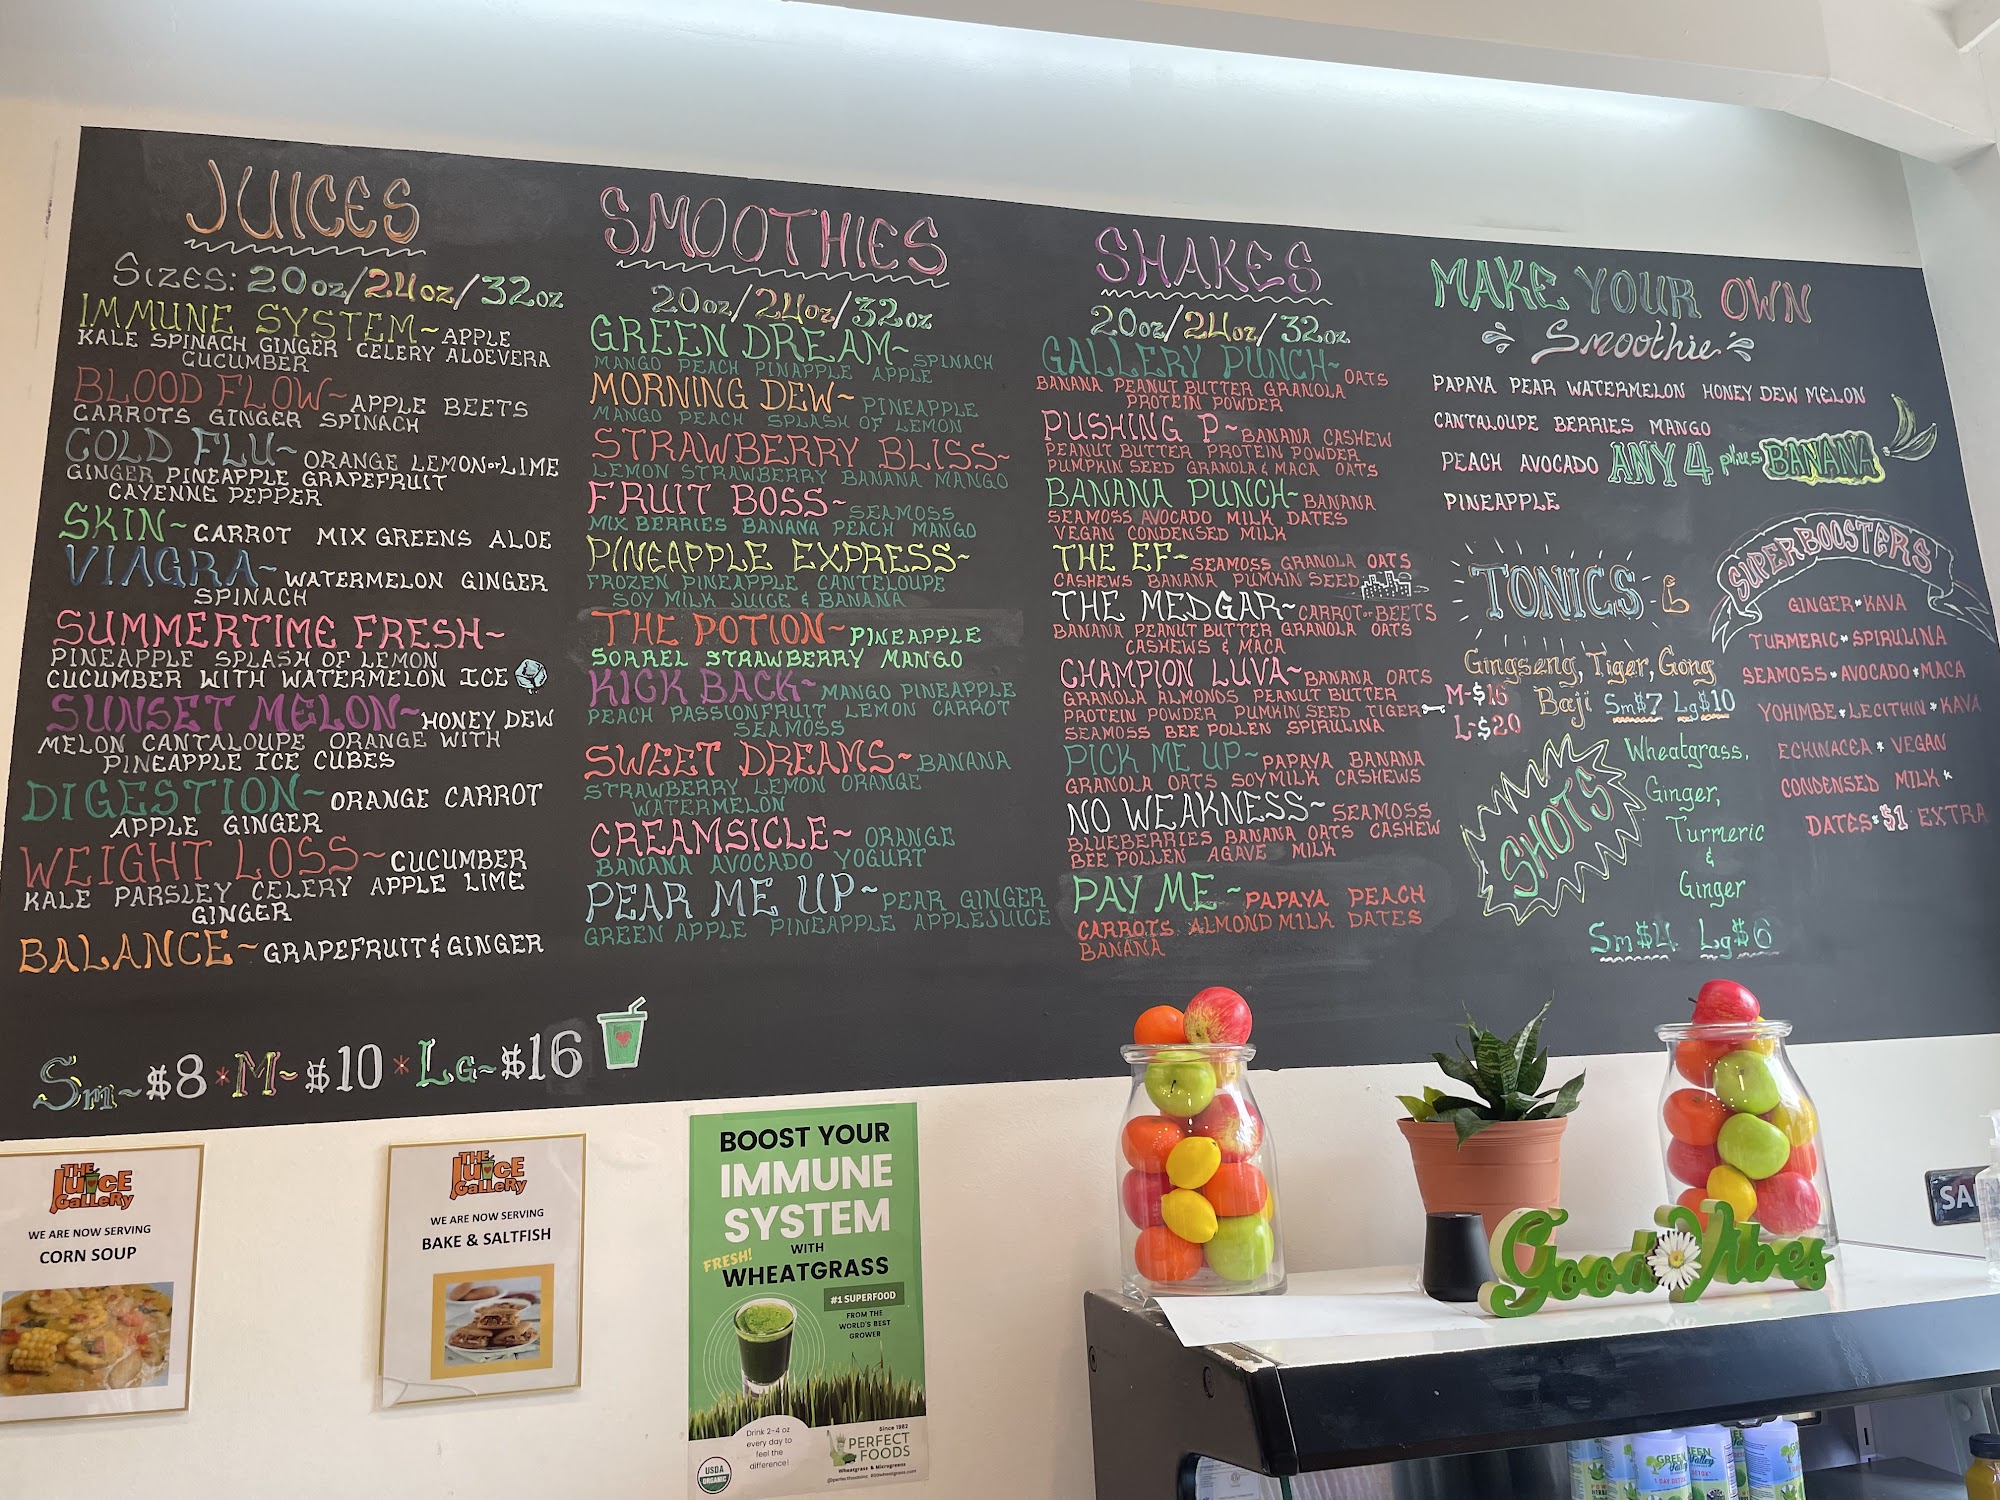 JUICES
SIZES: 20oz/24oz/32oz
IMMUNE SYSTEM~APPLE
KALE SPINACH GINGER CELERY ALOEVERA
CUCUMBER
BLOOD FLOW~APPLE BEETS
CARROTS GINGER SPINACH
COLD FLU~ORANGE LEMON or LIME
GINGER PINEAPPLE GRAPEFRUIT
CAYENNE PEPPER
SKIN~CARROT MIX GREENS ALOE
VIAGRA~WATERMELON GINGER
SPINACH
SUMMERTIME FRESH~
PINEAPPLE SPLASH OF LEMON
CUCUMBER WITH WATERMELON ICE
SUNSET MELON~HONEY DEW
MELON CANTALOUPE ORANGE WITH
PINEAPPLE ICE CUBES
DIGESTION~ORANGE CARROT
APPLE GINGER
WEIGHT LOSS~CUCUMBER
KALE PARSLEY CELERY APPLE LIME
GINGER
BALANCE~GRAPEFRUIT & GINGER
Sm~$8*M~$10*Lg~$16
SMOOTHIES
20oz/24oz/32oz
GREEN DREAM~SPINACH
MANGO PEACH PINAPPLE APPLE
MORNING DEW~PINEAPPLE
MANGO PEACH SPLASH OF LEMON
STRAWBERRY BLISS~
LEMON STRAWBERRY BANANA MANGO
FRUIT BOSS~SEAMOSS
MIX BERRIES BANANA PEACH MANGO
PINEAPPLE EXPRESS~
FROZEN PINEAPPLE CANTELOUPE
SOY MILK JUICE & BANANA
THE POTION~PINEAPPLE
SORREL STRAWBERRY MANGO
KICK BACK~MANGO PINEAPPLE
PEACH PASSIONFRUIT LEMON CARROT
SEAMOSS
SWEET DREAMS~BANANA
STRAWBERRY LEMON ORANGE
WATERMELON
CREAMSICLE~ORANGE
BANANA AVOCADO YOGURT
PEAR ME UP~PEAR GINGER
GREEN APPLE PINEAPPLE APPLEJUICE
SHAKES
20oz/24oz/32oz
GALLERY PUNCH~OATS
BANANA PEANUT BUTTER GRANOLA
PROTEIN POWDER
PUSHING P~BANANA CASHEW
PEANUT BUTTER PROTEIN POWDER
PUMPKIN SEED GRANOLA & MACA OATS
BANANA PUNCH~BANANA
SEAMOSS AVOCADO MILK DATES
VEGAN CONDENSED MILK
THE EF~SEAMOSS GRANOLA OATS
CASHEWS BANANA PUMKIN SEED
THE MEDGAR~CARROT or BEETS
BANANA PEANUT BUTTER GRANOLA OATS
CASHEWS & MACA
CHAMPION LUVA~BANANA OATS
GRANOLA ALMONDS PEANUT BUTTER
PROTEIN POWDER PUMKIN SEED TIGER
SEAMOSS BEE POLLEN SPIRULINA
PICK ME UP~PAPAYA BANANA
GRANOLA OATS SOYMILK CASHEWS
NO WEAKNESS~SEAMOSS
BLUEBERRIES BANANA OATS CASHEW
BEE POLLEN AGAVE MILK
PAY ME~PAPAYA PEACH
CARROTS ALMOND MILK DATES
BANANA
MAKE YOUR OWN
Smoothie
PAPAYA PEAR WATERMELON HONEY DEW MELON
CANTALOUPE BERRIES MANGO
PEACH AVOCADO ANY 4 plus BANANA
PINEAPPLE
TONICS
Gingseng, Tiger, Gong
Baji Sm$7 Lg$10
M-$16
L-$20
SHOTS
Wheatgrass,
Ginger,
Turmeric
&
Ginger
Sm$4 Lg$6
SUPERBOOSTERS
GINGER*KAVA
TURMERIC*SPIRULINA
SEAMOSS*AVOCADO*MACA
YOHIMBE*LECITHIN*KAVA
ECHINACEA*VEGAN
CONDENSED MILK*
DATES*$1 EXTRA
THE JUICE GALLERY
WE ARE NOW SERVING
CORN SOUP
THE JUICE GALLERY
WE ARE NOW SERVING
BAKE & SALTFISH
BOOST YOUR
IMMUNE
SYSTEM
WITH
FRESH!
WHEATGRASS
#1 SUPERFOOD
FROM THE
WORLD'S BEST
GROWER
Drink 2-4 oz
every day to
feel the
difference!
Since 1982
PERFECT
FOODS
Wheatgrass & Microgreens
USDA
ORGANIC
Good Vibes
SA
GREEN
Valley
1 DAY DETOX